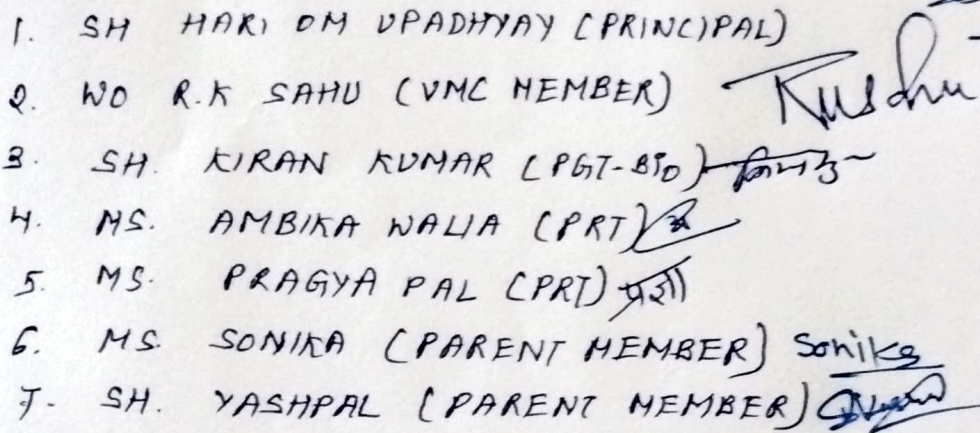 1. SH HARI OM UPADHYAY (PRINCIPAL)
2. WO R.K SAHU (VMC MEMBER)
3. SH. KIRAN KUMAR (PGT-BIO)
4. MS. AMBIKA WALIA (PRT)
5. MS. PRAGYA PAL (PRT) प्रज्ञा
6. MS. SONIKA (PARENT MEMBER) Sonika
7. SH. YASHPAL (PARENT MEMBER)